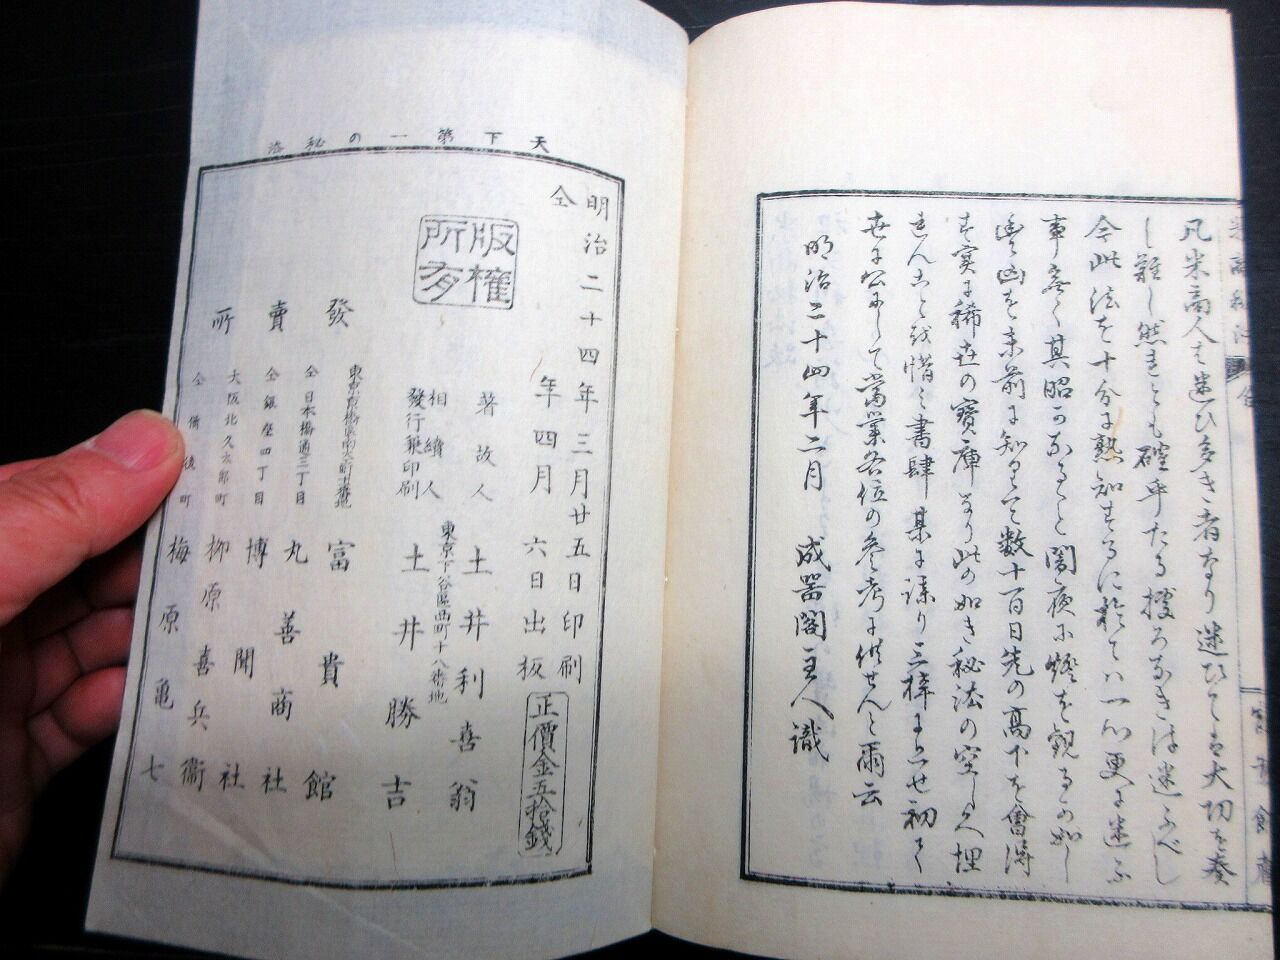 凡米商人は迷ひ多き者なり迷ひては大切を奏
し難し然れども確乎たる據ろなきは迷ふべし
今此法を十分に熟知するに於ては一心更に迷ふ
事なく其昭かなること闇夜に燈を観るが如し
凶を未前に知りて数十百日先の高下を會得
す実に稀世の寶庫なり此の如き秘法の空しく埋
れんことを惜み書肆某に謀り上梓せ初て
世に公にして當業各位の参考に供せんと爾云
明治二十四年二月 成器閣主人識
天下第一の秘法
明治二十四年三月廿五日印刷
仝 年四月 六日出板
正價金五拾錢
版權所有
著故人 土井利喜翁
相續人
發行兼印刷
東京下谷區西町十八番地
土井勝吉
發賣所
富貴館
仝日本橋通三丁目 丸善商社
仝銀座四丁目 博聞社
大阪北久太郎町 柳原喜兵衞
仝備後町 梅原亀七